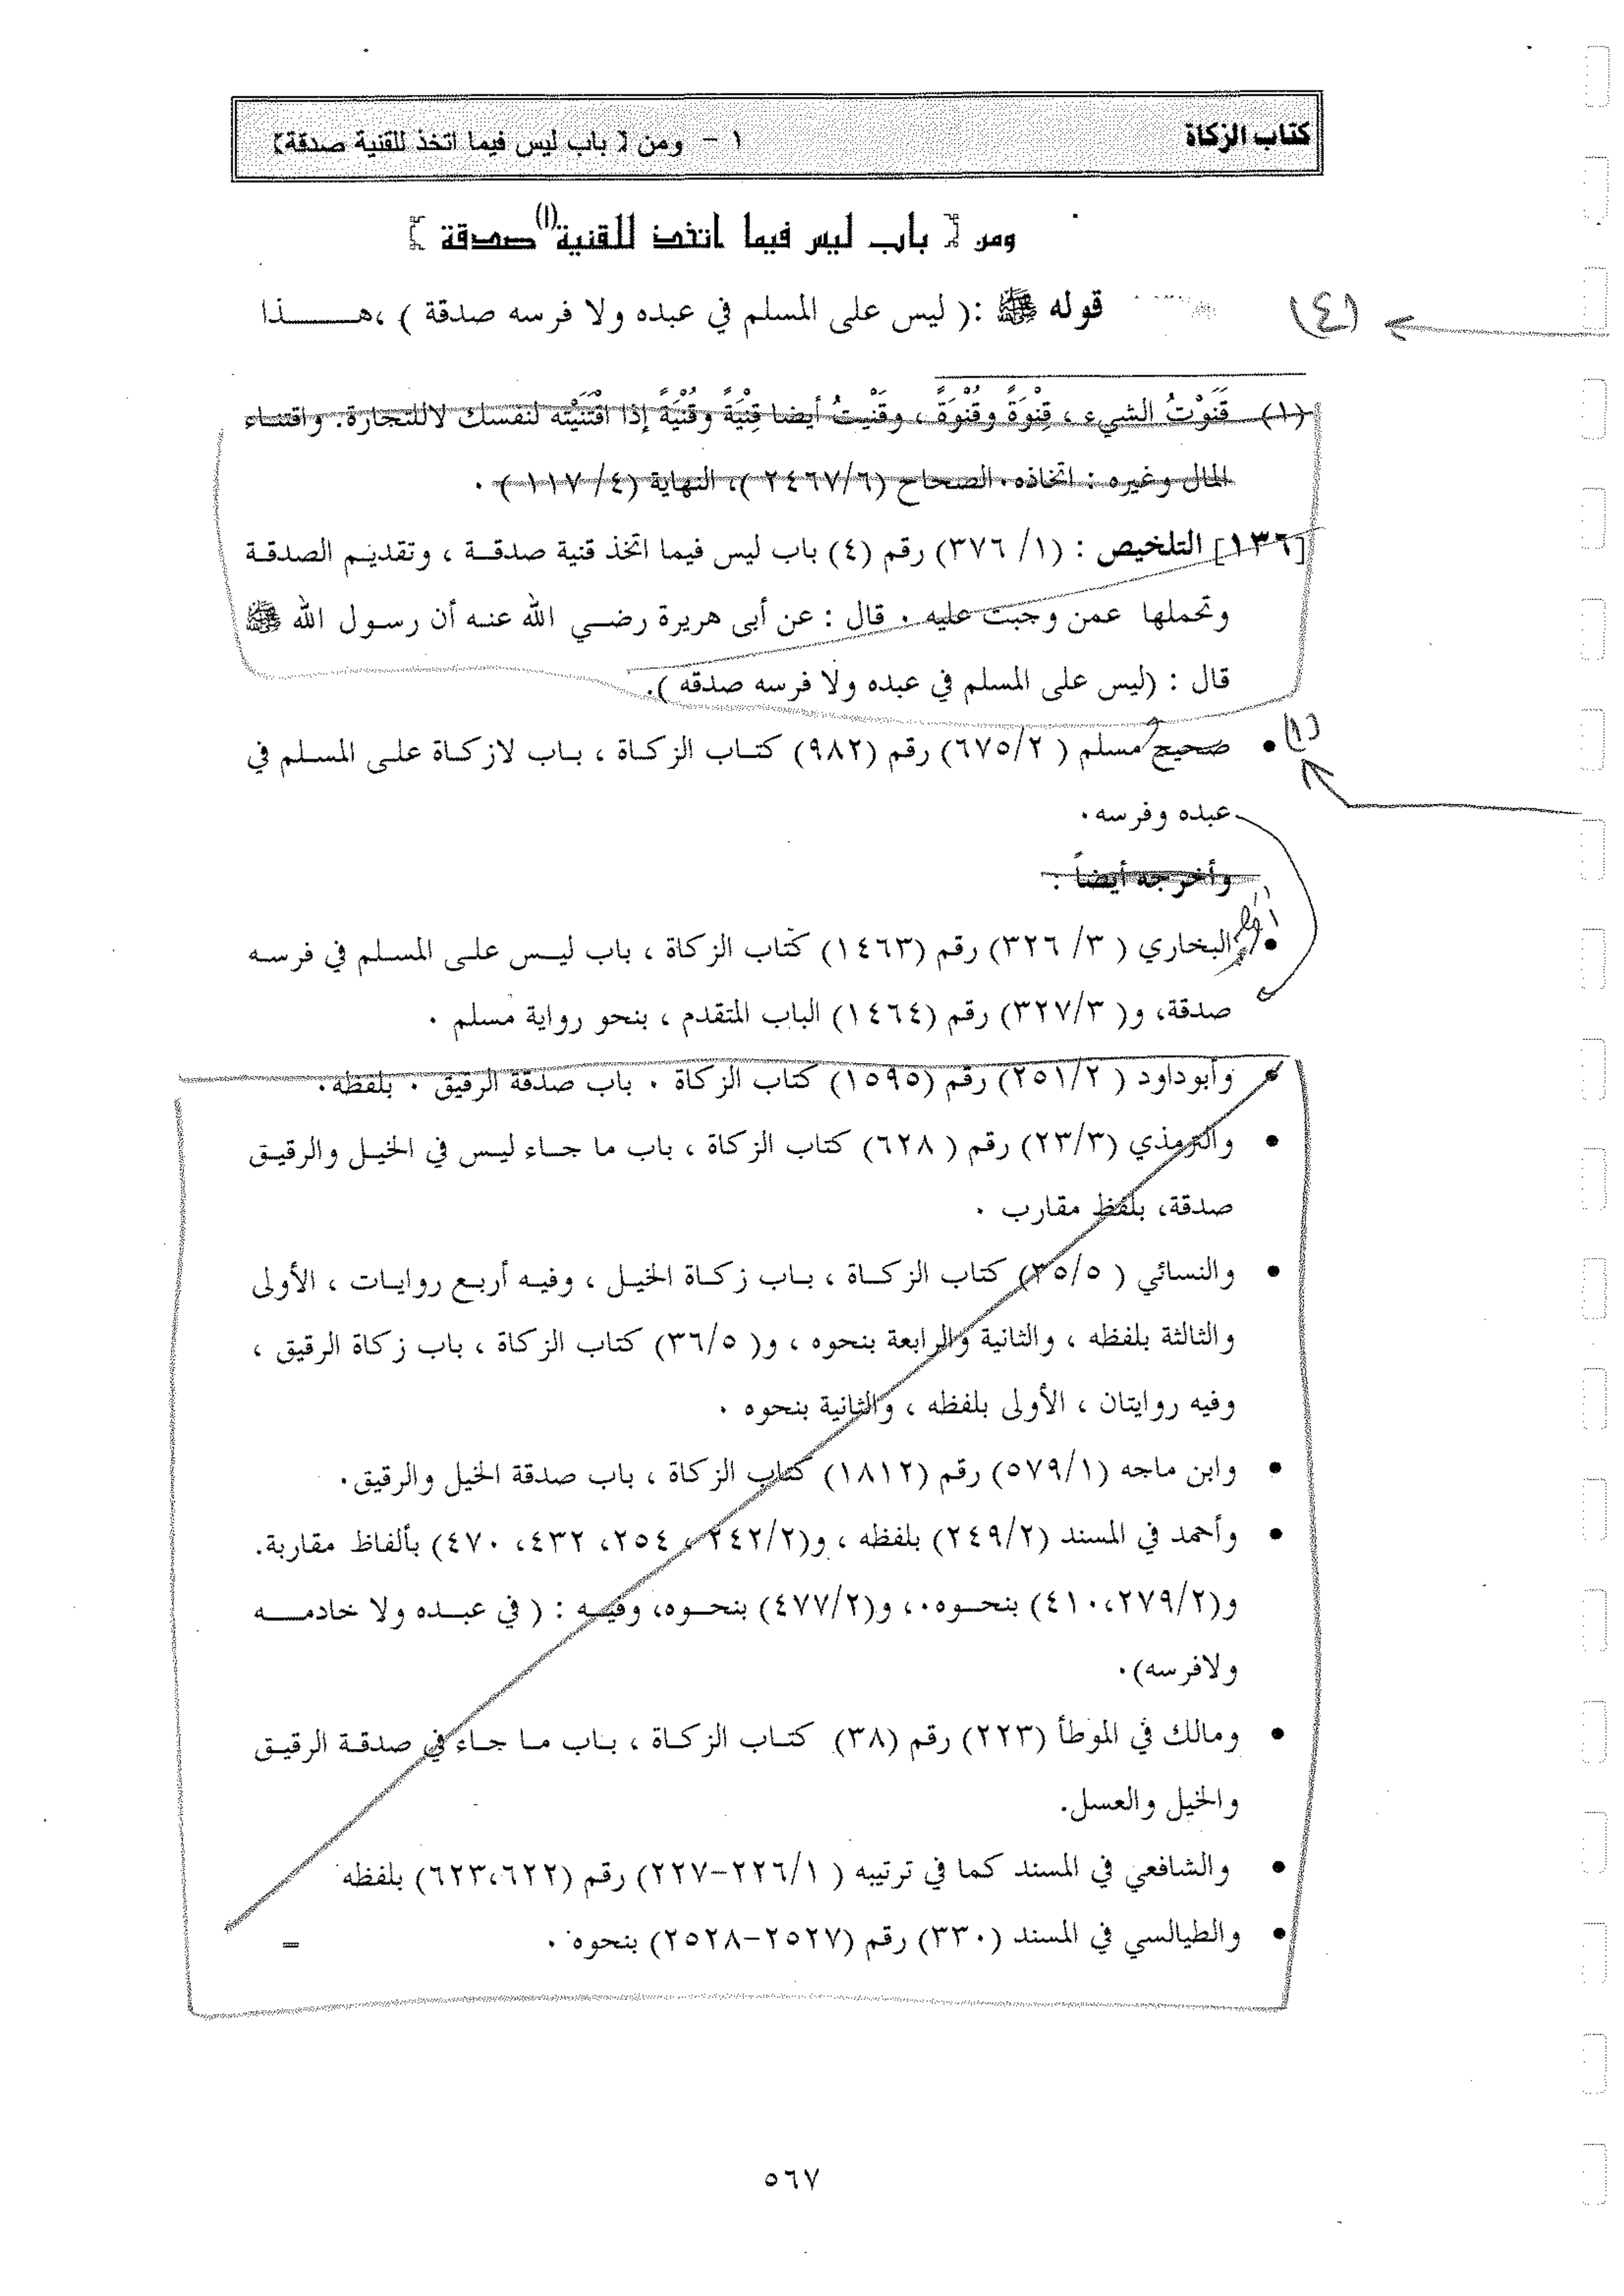 كتاب الزكاة ١ – ومن [ باب ليس فيما اتخذ للقنية صدقة]
ومن [ باب ليس فيما اتخذ للقنية(١) صدقة ]
(٤) قوله ﷺ :( ليس على المسلم في عبده ولا فرسه صدقة ) ،هـــــذا
(١) قَنَوْتُ الشيء ، قِنْوَةً وقُنْوَةً ، وقَنْيتُ أيضا قِنْيَةً وقُنْيَةً إذا اقْتَنَيْته لنفسك لاللتجارة. واقتنـاء
المال وغيره : اتخاذه. الصحاح (٢٤٦٧/٦ )، النهاية (٤/ ١١٧ ) .
[١٣٦] التلخيص : (١/ ٣٧٦) رقم (٤) باب ليس فيما اتخذ قنية صدقــة ، وتقديـم الصدقـة
وتحملها عمن وجبت عليه . قال : عن أبى هريرة رضـي الله عنـه أن رسـول الله ﷺ
قال : (ليس على المسلم في عبده ولا فرسه صدقه ).
(١) • صحيح مسلم ( ٦٧٥/٢) رقم (٩٨٢) كتـاب الزكـاة ، بـاب لازكـاة علـى المسـلم في
عبده وفرسه.
وأخرجه أيضاً :
• البخاري ( ٣/ ٣٢٦) رقم (١٤٦٣) كتاب الزكاة ، باب ليـس علـى المسـلم في فرسـه
صدقة، و( ٣٢٧/٣) رقم (١٤٦٤) الباب المتقدم ، بنحو رواية مسلم .
• وأبوداود ( ٢٥١/٢) رقم (١٥٩٥) كتاب الزكاة . باب صدقة الرقيق . بلفظه.
• والترمذي (٢٣/٣) رقم ( ٦٢٨) كتاب الزكاة ، باب ما جـاء ليـس في الخيـل والرقيـق
صدقة، بلفظ مقارب .
• والنسائي ( ٣٥/٥) كتاب الزكـاة ، بـاب زكـاة الخيـل ، وفيـه أربـع روايـات ، الأولى
والثالثة بلفظه ، والثانية والرابعة بنحوه ، و( ٣٦/٥) كتاب الزكاة ، باب زكاة الرقيق ،
وفيه روايتان ، الأولى بلفظه ، والثانية بنحوه .
• وابن ماجه (٥٧٩/١) رقم (١٨١٢) كتاب الزكاة ، باب صدقة الخيل والرقيق.
• وأحمد في المسند (٢٤٩/٢) بلفظه ، و(٢٤٢/٢ ، ٢٥٤، ٤٣٢، ٤٧٠) بألفاظ مقاربة.
و(٢٧٩/٢،٤١٠) بنحـوه.، و(٤٧٧/٢) بنحـوه، وفيـه : ( في عبـده ولا خادمـــه
ولافرسه).
• ومالك في الموطأ (٢٢٣) رقم (٣٨) كتـاب الزكـاة ، بـاب مـا جـاء في صدقـة الرقيـق
والخيل والعسل.
• والشافعي في المسند كما في ترتيبه ( ٢٢٦/١–٢٢٧) رقم (٦٢٢،٦٢٣) بلفظه
• والطيالسي في المسند (٣٣٠) رقم (٢٥٢٧–٢٥٢٨) بنحوه . =
٥٦٧